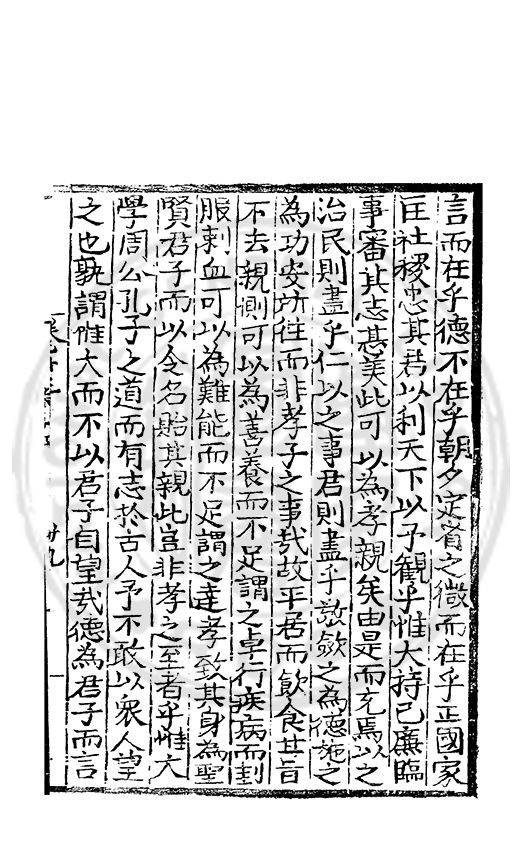 言而在乎德不在乎朝夕定省之微而在乎正國家
匡社稷忠其君以利天下以予觀乎惟大持己廉臨
事審其志甚美此可以為孝親矣由是而充焉以之
治民則盡乎仁以之事君則盡乎敬斂之為德施之
為功安所往而非孝子之事㢤故平居而飲食甘旨
不去親側可以為善養而不足謂之卓行疾病而刲
服刺血可以為難能而不足謂之達孝致其身為聖
賢君子而以令名貽其親此豈非孝之至者乎惟大
學周公孔子之道而有志於古人予不敢以衆人望
之也孰謂惟大而不以君子自望㢤德為君子而言
卅九